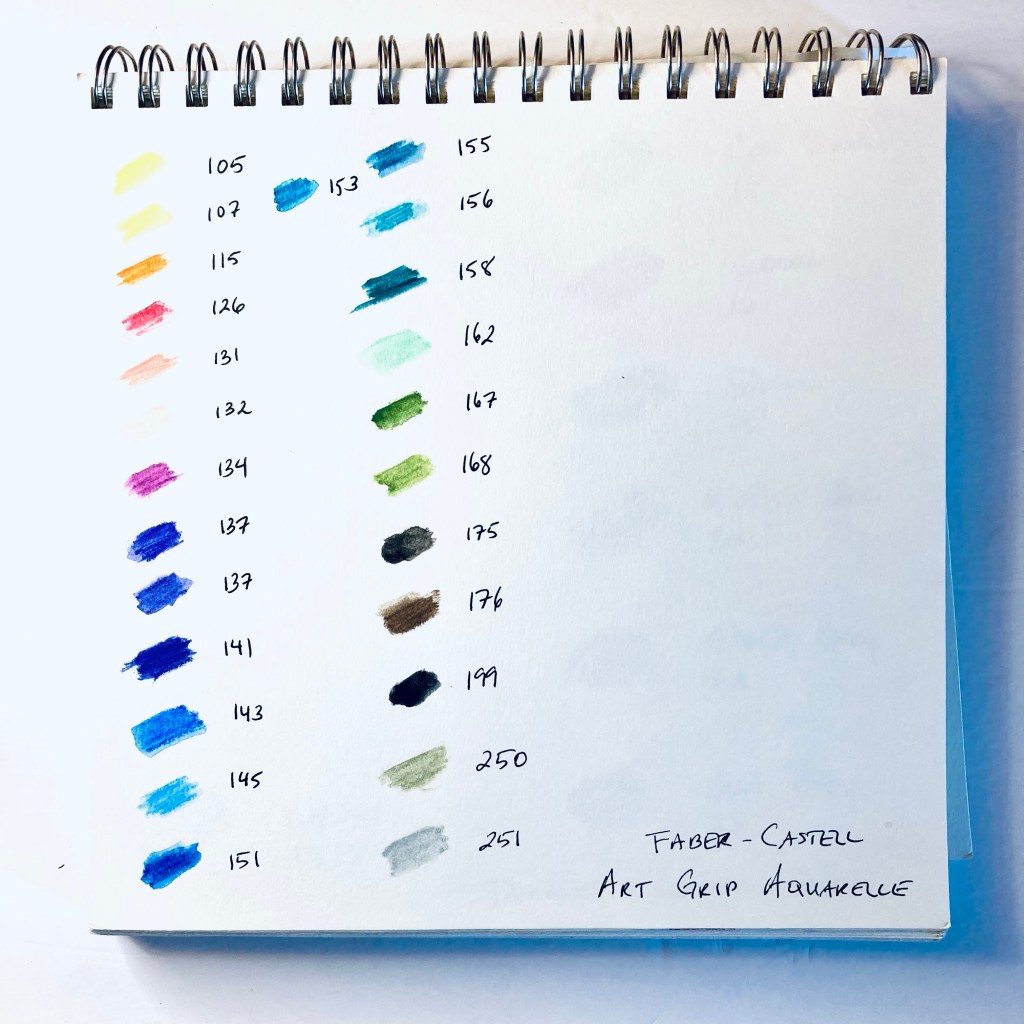 105
107
115
126
131
132
134
137
137
141
143
145
151
153
155
156
158
162
167
168
175
176
199
250
251
FABER-CASTELL
ART GRIP AQUARELLE